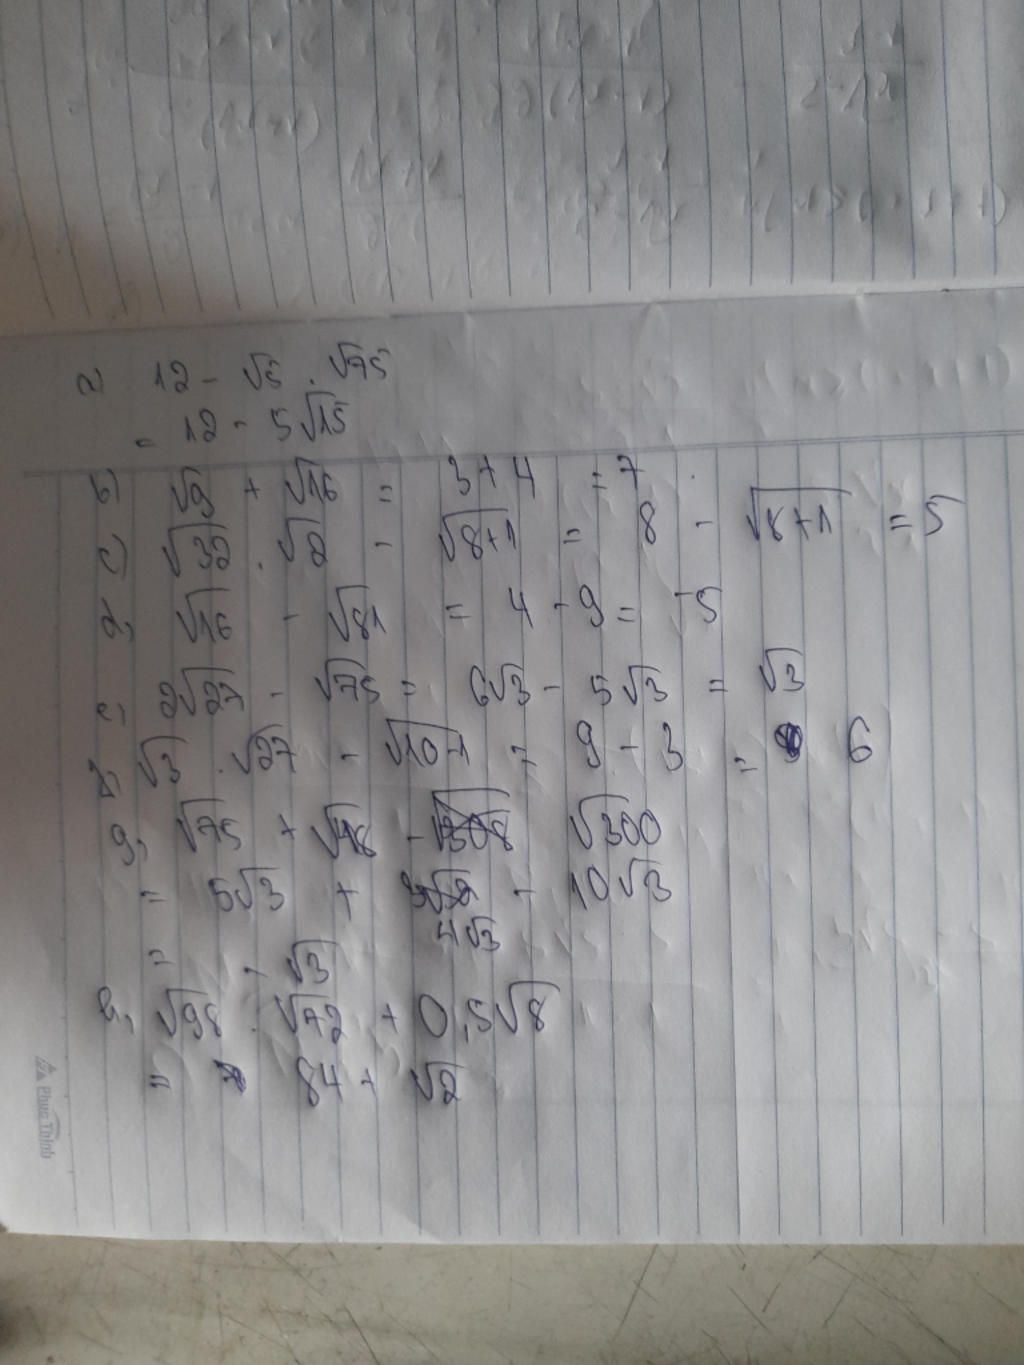 a) 12 - √5 . √75
= 12 - 5√15
b) √9 + √16 = 3 + 4 = 7
c) √32 . √2 - √8+1 = 8 - √8+1 = 5
d, √16 - √81 = 4 - 9 = -5
e, 2√27 - √75 = 6√3 - 5√3 = √3
f, √3 . √27 - √10-1 = 9 - 3 = 6
g, √75 + √48 - √300
= 5√3 + 4√3 - 10√3
= - √3
h, √98 . √72 + 0,5√8
= 84 + √2
Phuc Thinh